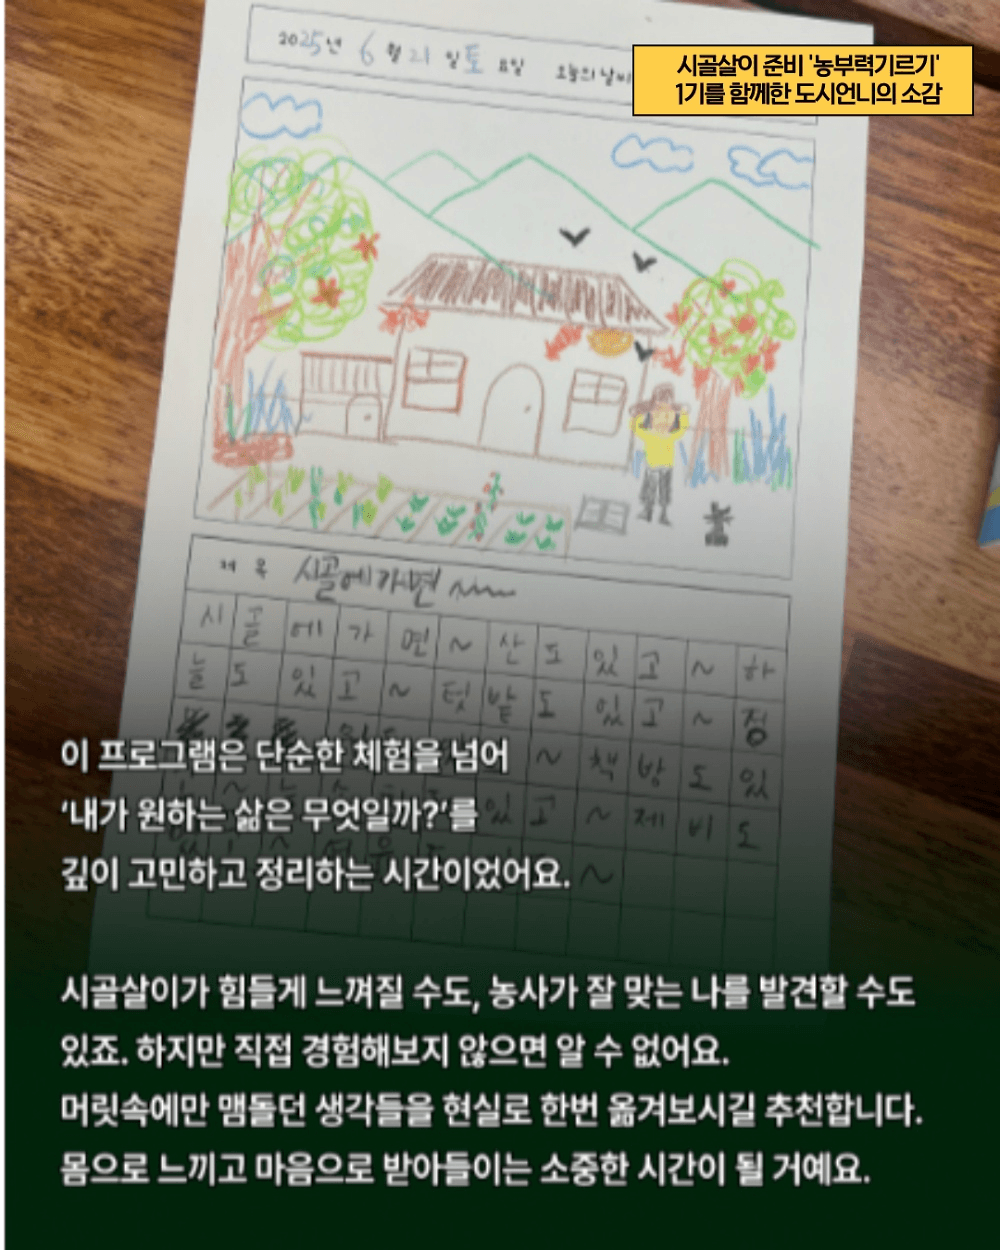 2025년 6월 21일 토요일 오늘의 날씨
시골살이 준비 '농부력기르기'
1기를 함께한 도시언니의 소감
제목 시골에 가면~
시골에 가면~ 산도 있고~ 하
늘도 있고~ 텃밭도 있고~ 정
~ 책방도 있
있고~ 제비도
~
이 프로그램은 단순한 체험을 넘어
‘내가 원하는 삶은 무엇일까?’를
깊이 고민하고 정리하는 시간이었어요.
시골살이가 힘들게 느껴질 수도, 농사가 잘 맞는 나를 발견할 수도
있죠. 하지만 직접 경험해보지 않으면 알 수 없어요.
머릿속에만 맴돌던 생각들을 현실로 한번 옮겨보시길 추천합니다.
몸으로 느끼고 마음으로 받아들이는 소중한 시간이 될 거예요.